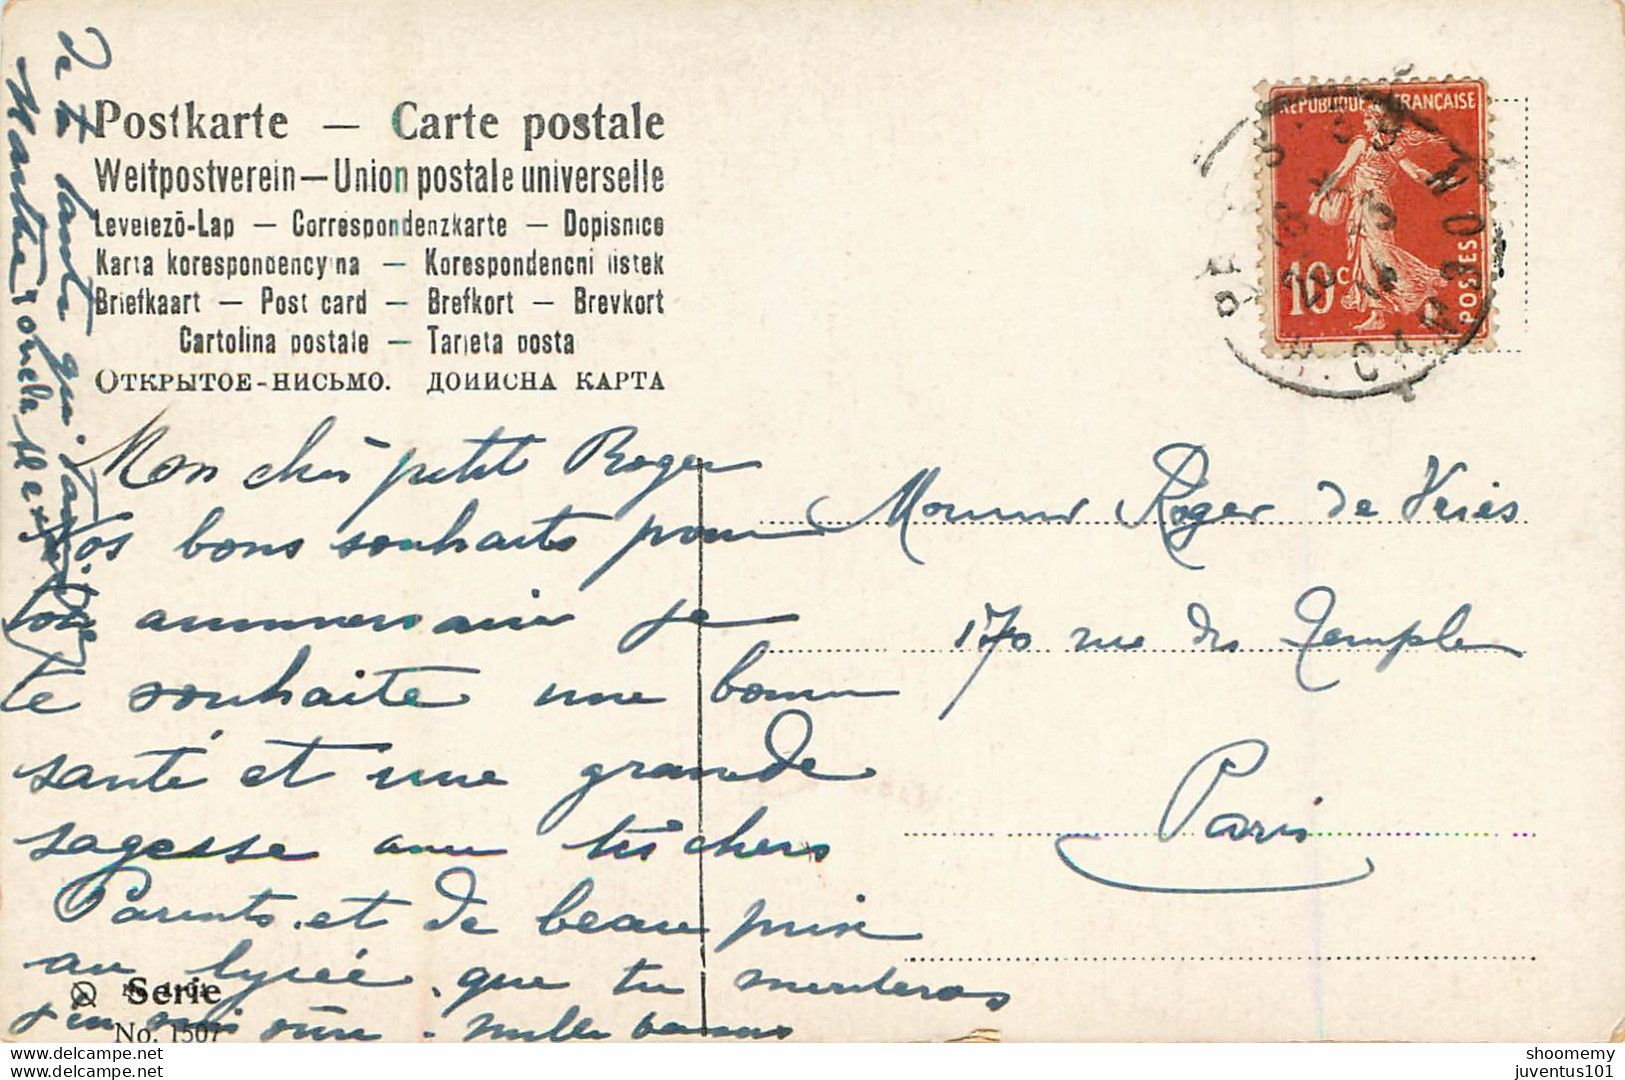 Postkarte — Carte postale
Weltpostverein — Union postale universelle
Levelező-Lap — Correspondenzkarte — Dopisnice
Karta korespondencyjna — Korespondencni listek
Briefkaart — Post card — Brefkort — Brevkort
Cartolina postale — Tarjeta posta
ОТКРЫТОЕ-НИСЬМО. ДОИИСНА КАРТА
REPUBLIQUE FRANÇAISE
10c
POSTES
Mon cher petit Roger
Nos bons souhaits pour
ton anniversaire je
te souhaite une bonne
santé et une grande
sagesse avec tes chers
Parents. et de beau prix
au lycée. que tu mériteras
j'en suis sûre. mille
De ta tante qui
Marthe
Monsieur Roger de Veriès
170 rue du Temple
Paris
Serie
No. 1507
www.delcampe.net
www.delcampe.net
shoomemy
juventus101